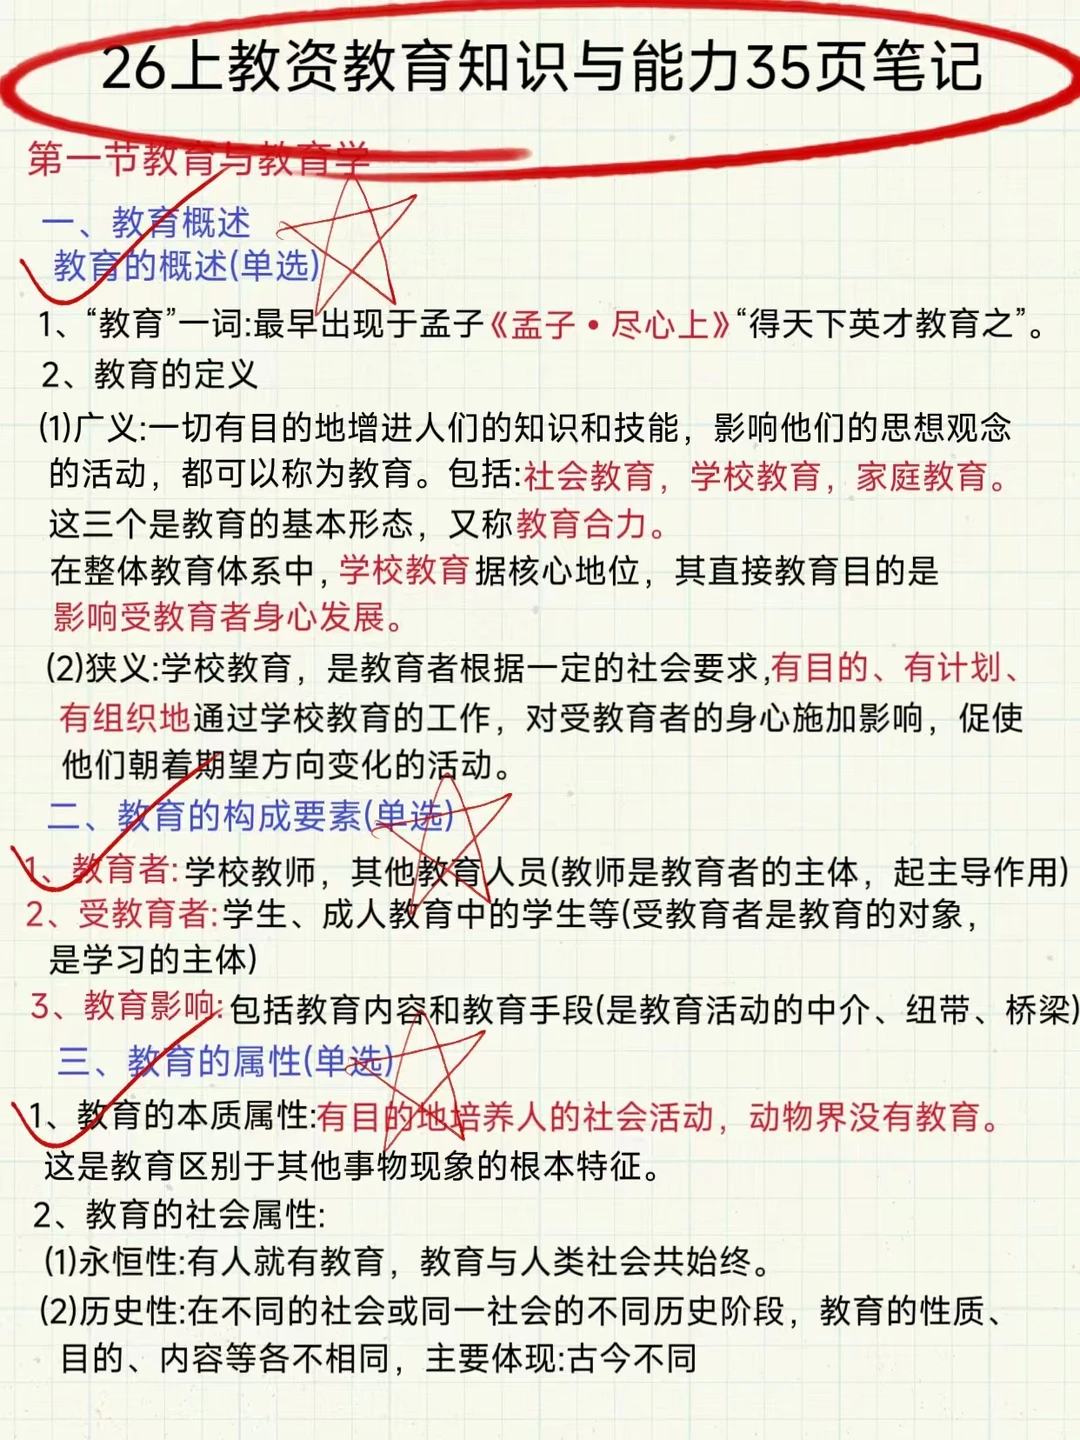 26上教资教育知识与能力35页笔记
第一节教育与教育学
一、教育概述
教育的概述(单选)
1、“教育”一词:最早出现于孟子《孟子·尽心上》“得天下英才教育之”。
2、教育的定义
(1)广义:一切有目的地增进人们的知识和技能，影响他们的思想观念
的活动，都可以称为教育。包括:社会教育，学校教育，家庭教育。
这三个是教育的基本形态，又称教育合力。
在整体教育体系中,学校教育据核心地位，其直接教育目的是
影响受教育者身心发展。
(2)狭义:学校教育，是教育者根据一定的社会要求,有目的、有计划、
有组织地通过学校教育的工作，对受教育者的身心施加影响，促使
他们朝着期望方向变化的活动。
二、教育的构成要素(单选)
1、教育者:学校教师，其他教育人员(教师是教育者的主体，起主导作用)
2、受教育者:学生、成人教育中的学生等(受教育者是教育的对象，
是学习的主体)
3、教育影响:包括教育内容和教育手段(是教育活动的中介、纽带、桥梁)
三、教育的属性(单选)
1、教育的本质属性:有目的地培养人的社会活动，动物界没有教育。
这是教育区别于其他事物现象的根本特征。
2、教育的社会属性:
(1)永恒性:有人就有教育，教育与人类社会共始终。
(2)历史性:在不同的社会或同一社会的不同历史阶段，教育的性质、
目的、内容等各不相同，主要体现:古今不同